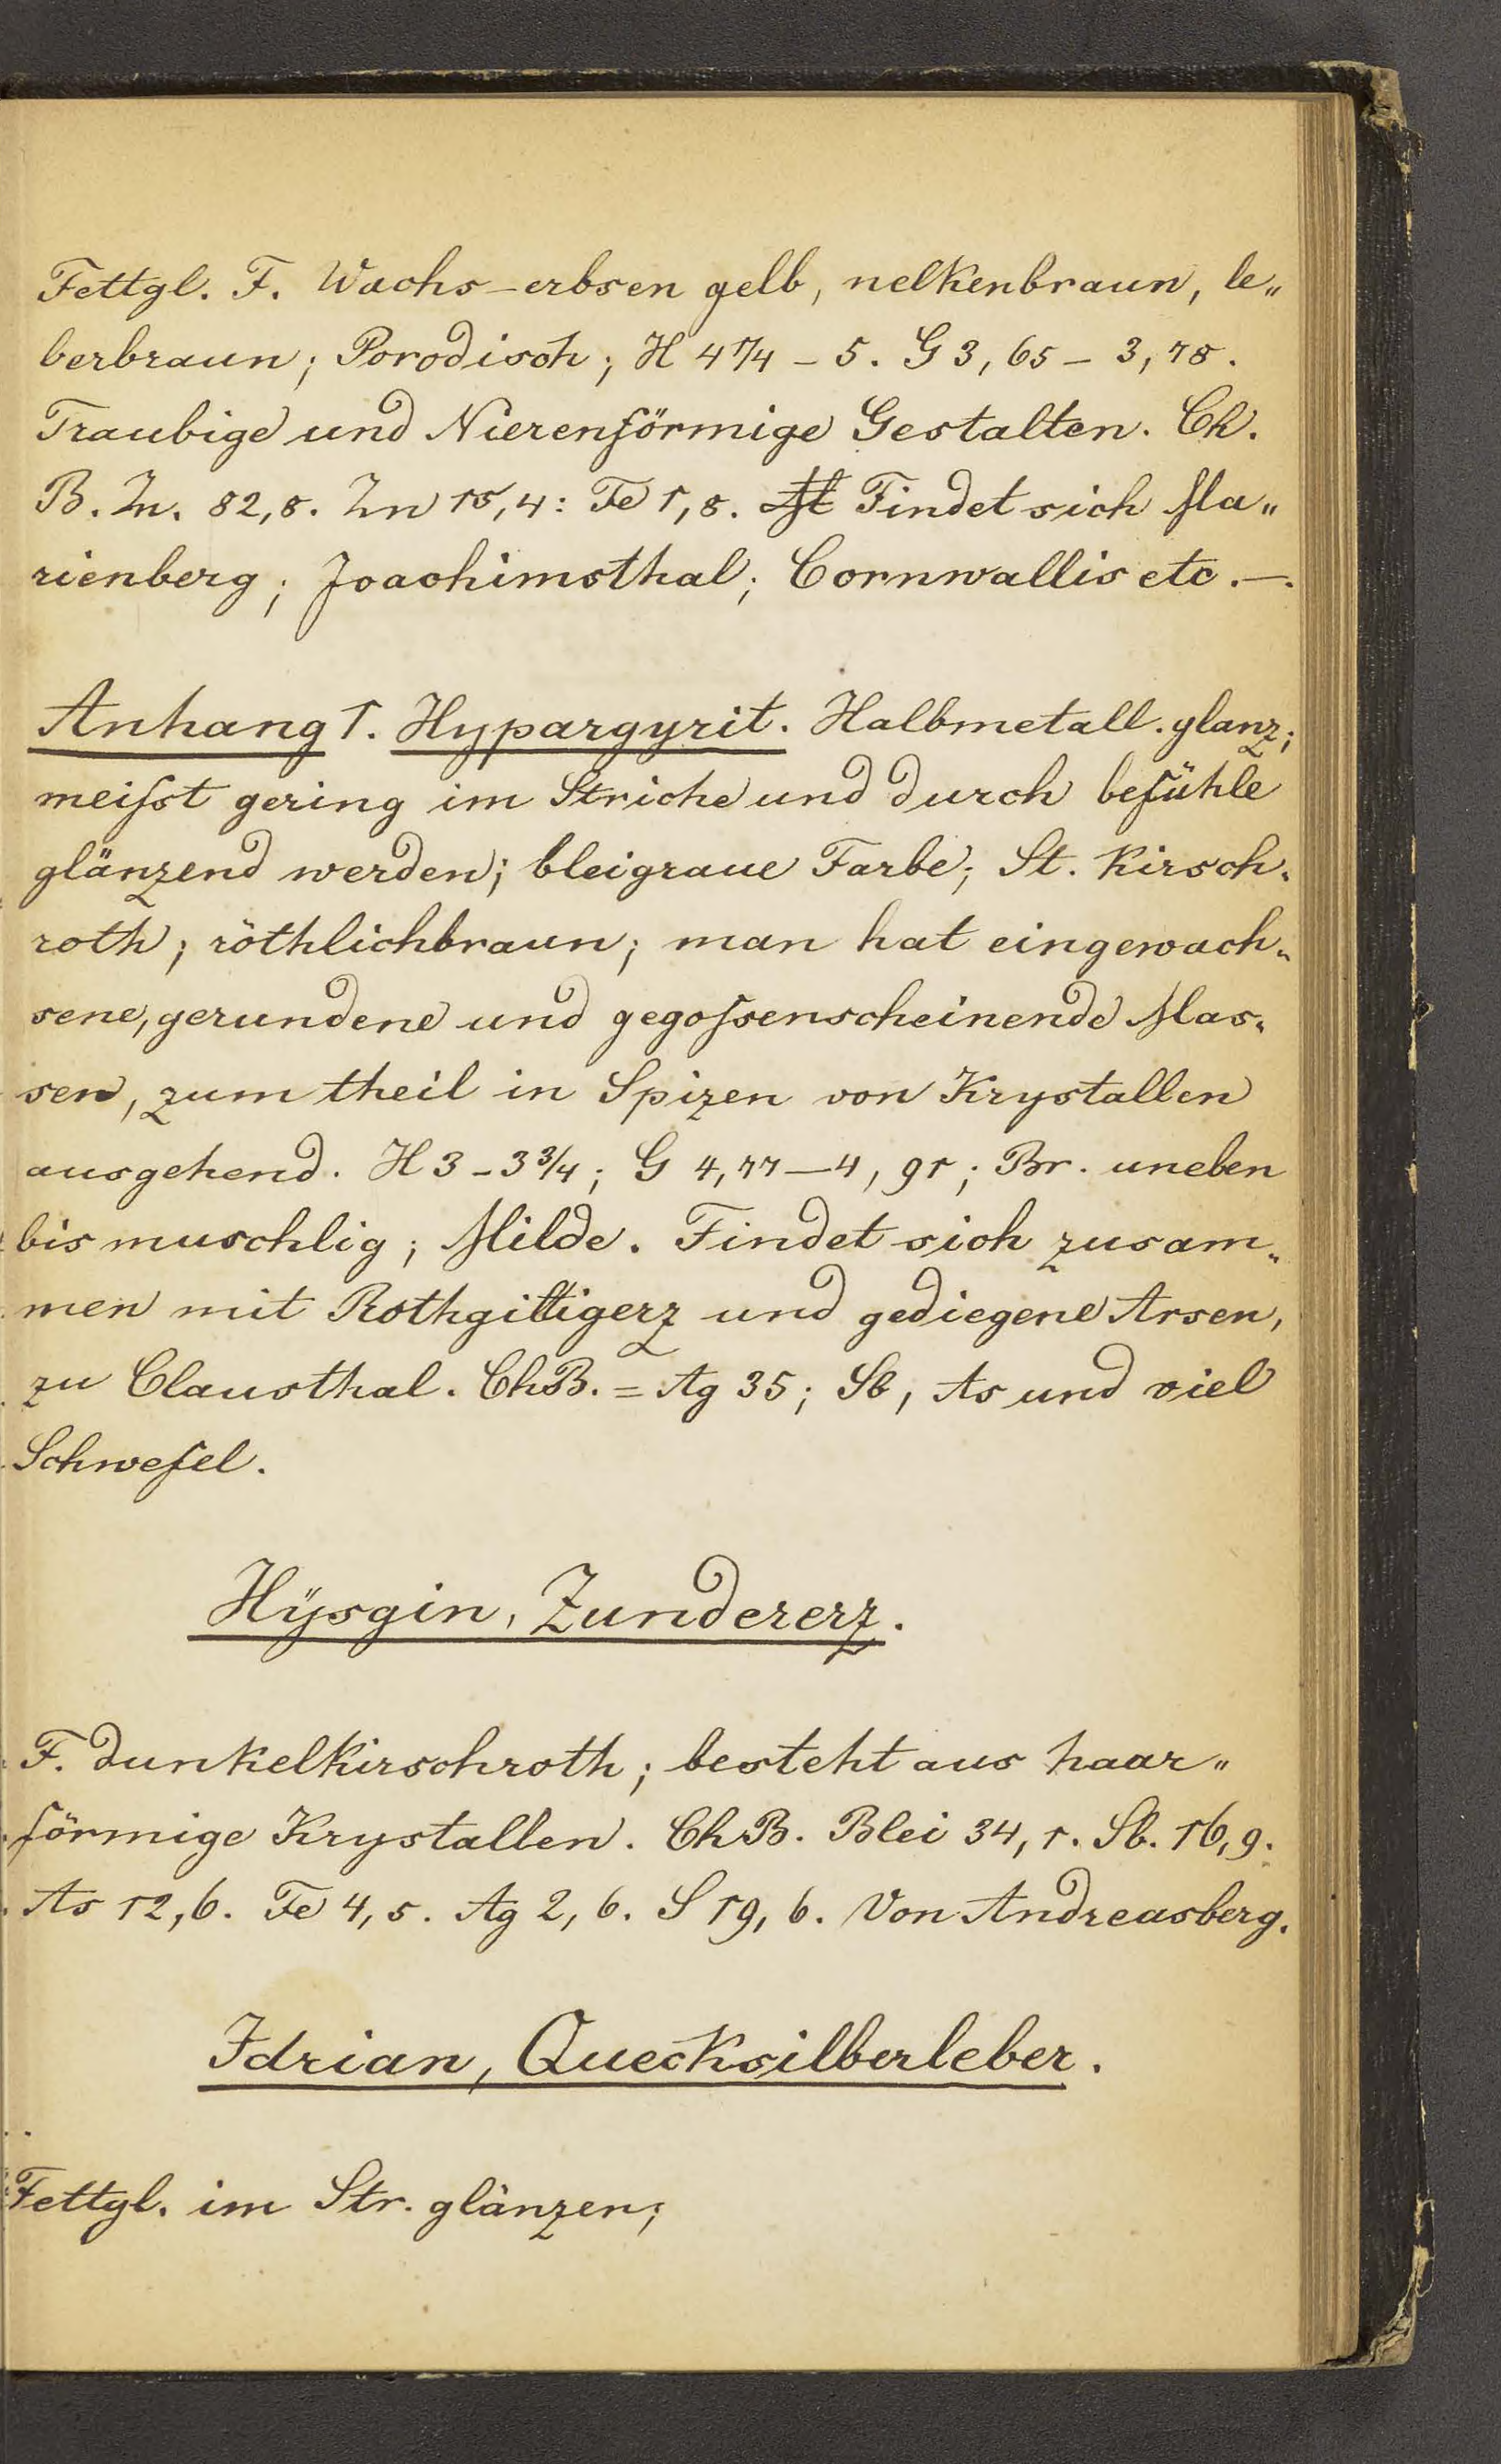 Fettgl. F. Wachs-erbsen gelb, nelkenbraun, le„
berbraun; Porodisch; H 4 1/4 - 5. G 3,65 - 3,78.
Traubige und Nierenförmige Gestalten. Ch.
B. Zn. 82,8. Zn 15,4: Fe 1,8. Findet sich Ma„
rienberg; Joachimsthal; Cornwallis etc. —.
Anhang 1. Hypargyrit. Halbmetall. glanz;
meisst gering im Striche und durch befühle
glänzend werden; bleigraue Farbe; St. Kirsch„
roth; röthlichbraun; man hat eingewach„
sene, gerundene und gegossenscheinende Mas„
sen, zum theil in Spizen von Krystallen
ausgehend. H 3 - 3 3/4; G 4,77 — 4,91; Br. uneben
bis muschlig; Milde. Findet sich zusam„
men mit Rothgiltigerz und gediegene Arsen,
zu Clausthal. ChB. = Ag 35; Sb, As und viel
Schwefel.
Hÿsgin, Zundererz.
F. dunkelkirschroth; besteht aus haar„
förmige Krystallen. ChB. Blei 34,1. Sb. 16,9.
As 12,6. Fe 4,5. Ag 2,6. S 19,6. Von Andreasberg.
Idrian, Quecksilberleber.
Fettgl. im Str. glänzen;